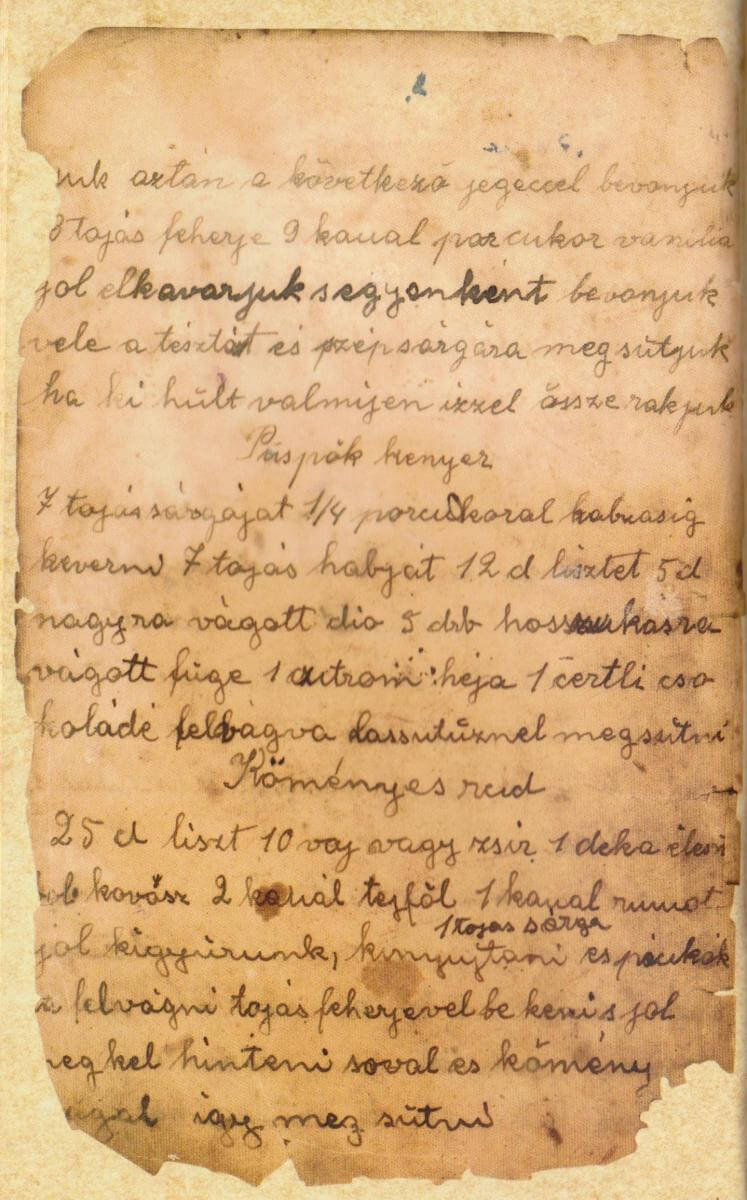 aztán a következő jegeccel bevonjuk
3 tojás feherje 9 kaual porcukor vanilia
jol elkavarjuk s egyenként bevonjuk
vele a tésztát és szép sárgára meg sütjuk
ha ki hült valmijen izzel össze rakjuk
Püspök kenyer
7 tojás sárgáját 1/4 porcukoral habzasig
keverni 7 tojás habját 12 d lisztet 5 d
nagyra vágott dio 5 drb hosszukásra
vágott füge 1 citrom héja 1 čertli cso
koládé felvágva lassutűznel megsütni
Köményes rud
25 d liszt 10 vaj vagy zsir 1 deka
kovősz 2 kanál tejföl 1 kaual rumot
1 tojas sárga
jól kigyúrunk, kinyujtani es
felvágni tojás feherjevel be keni s jol
kel hinteni soval es kömény
igy meg sütni